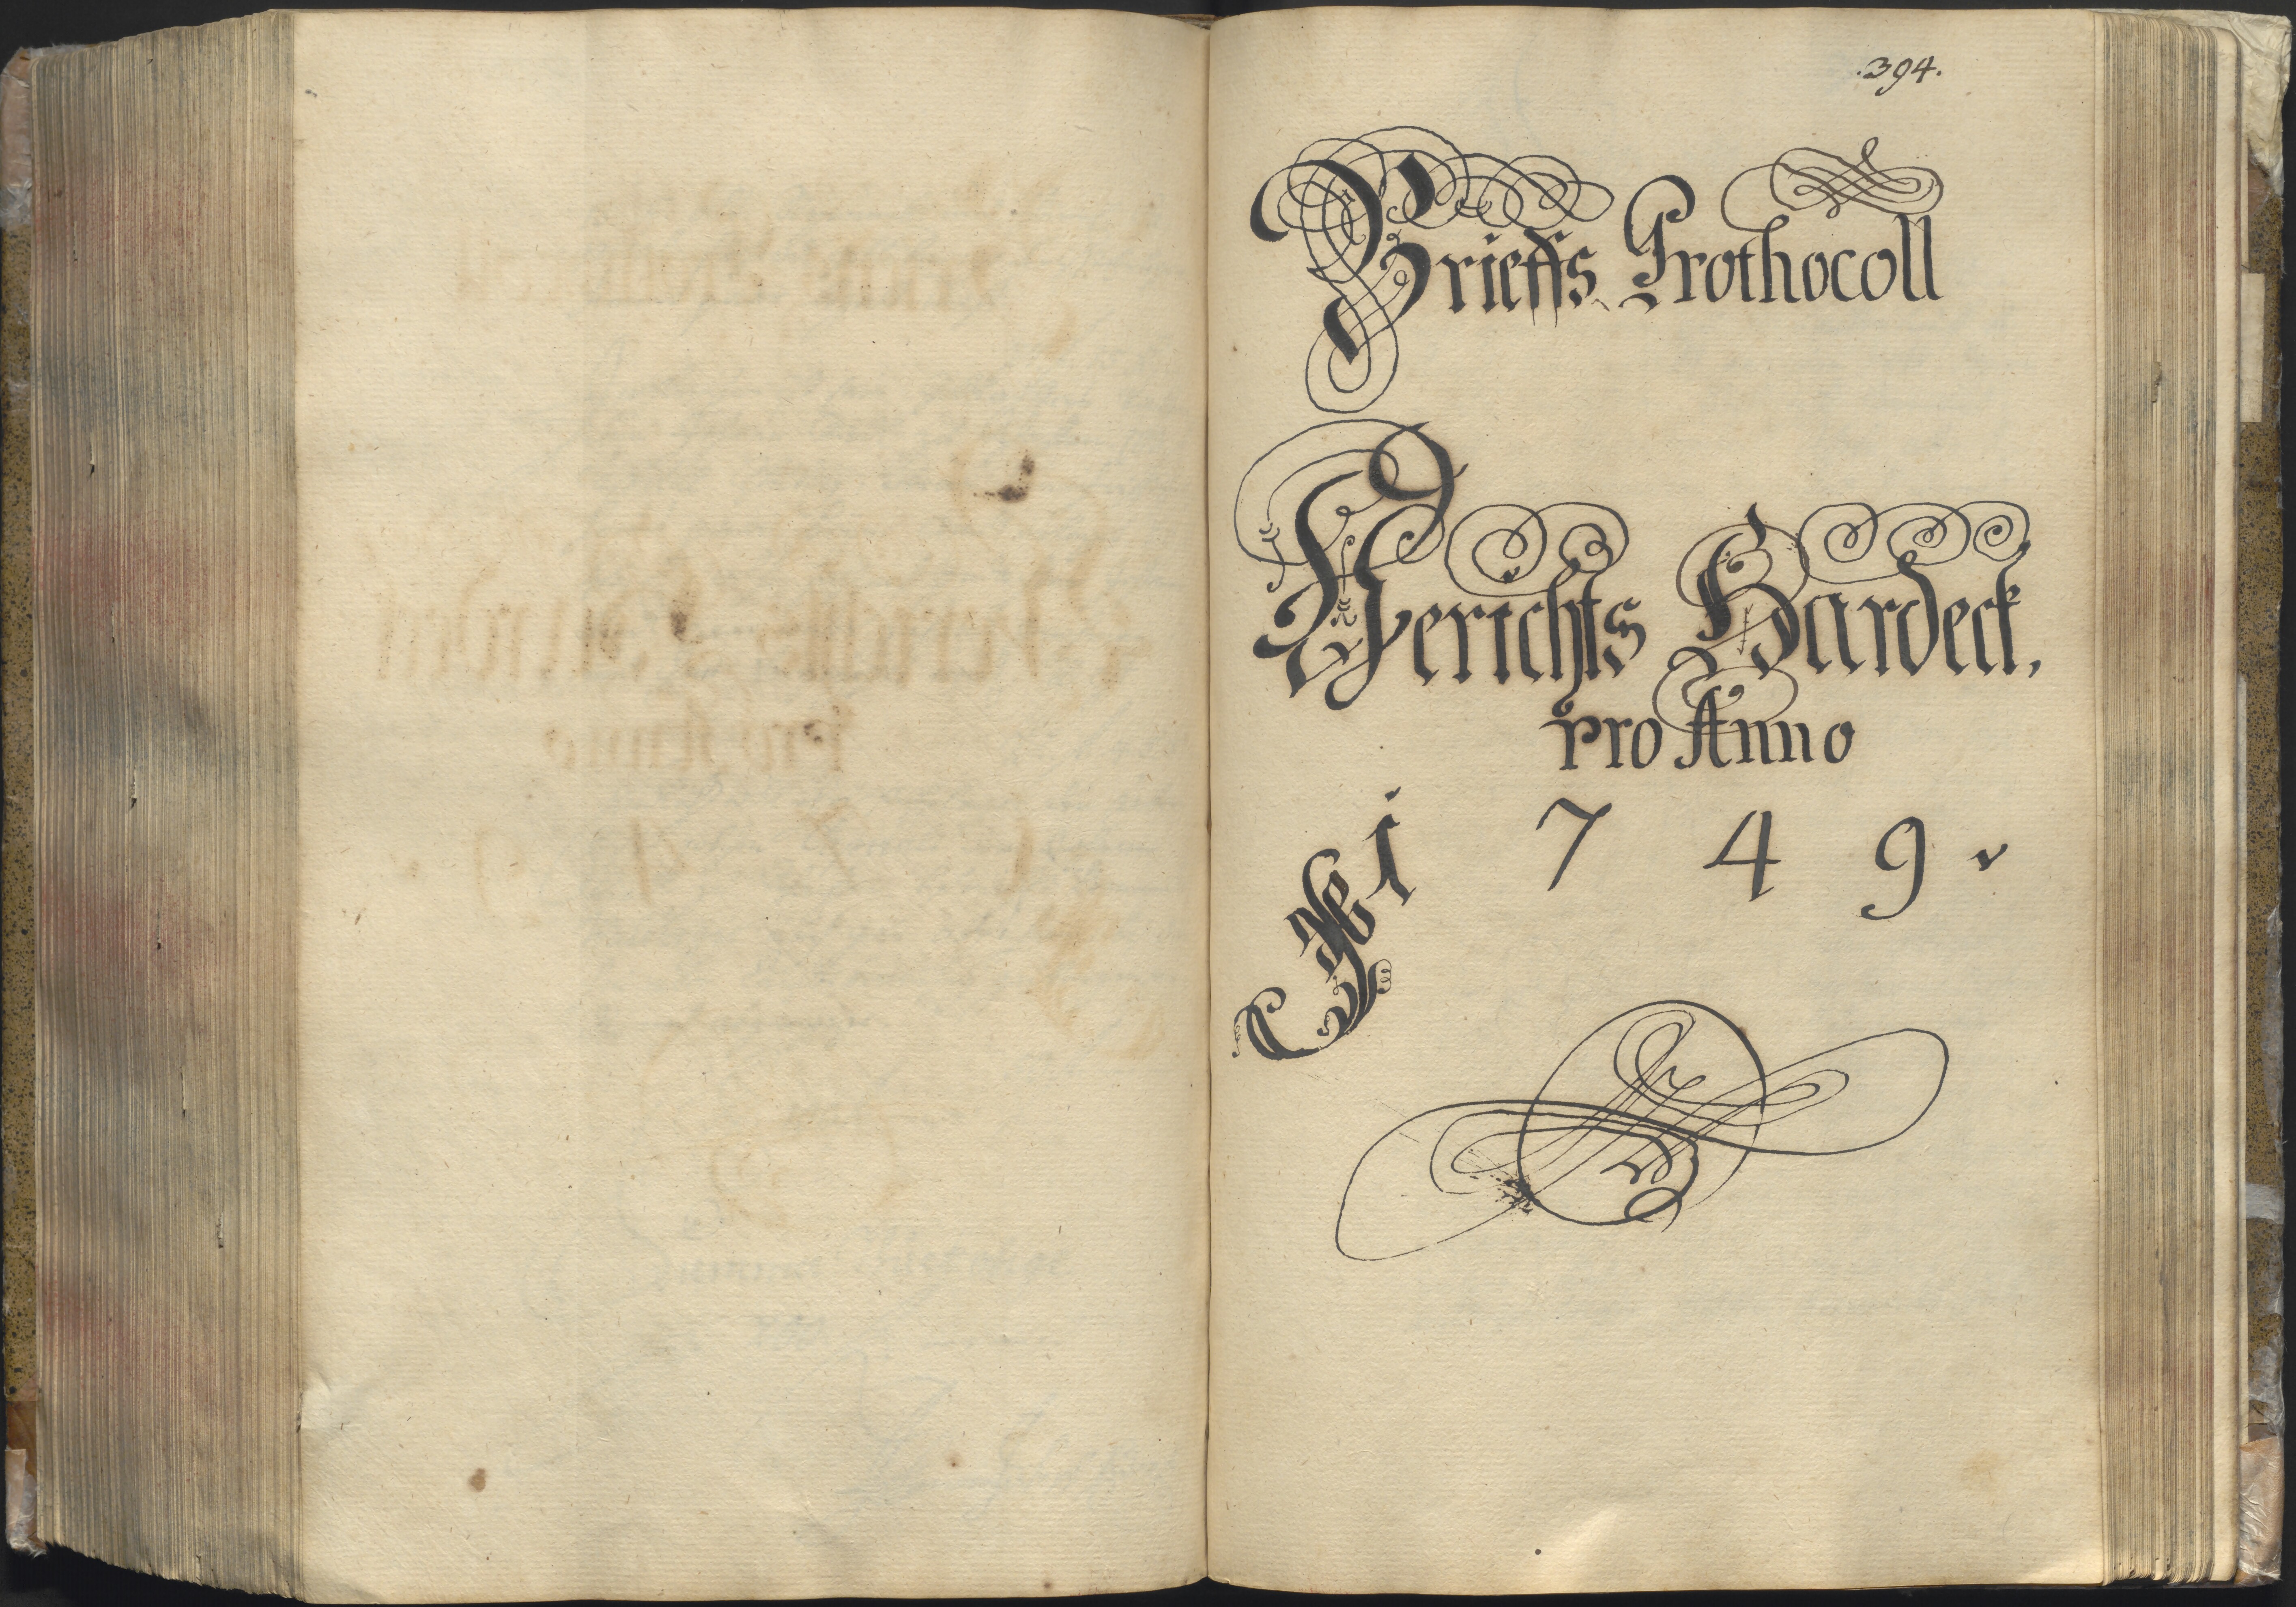 .394.
Brieffs Prothocoll
Gerichts Hardeck,
pro Anno
1749.